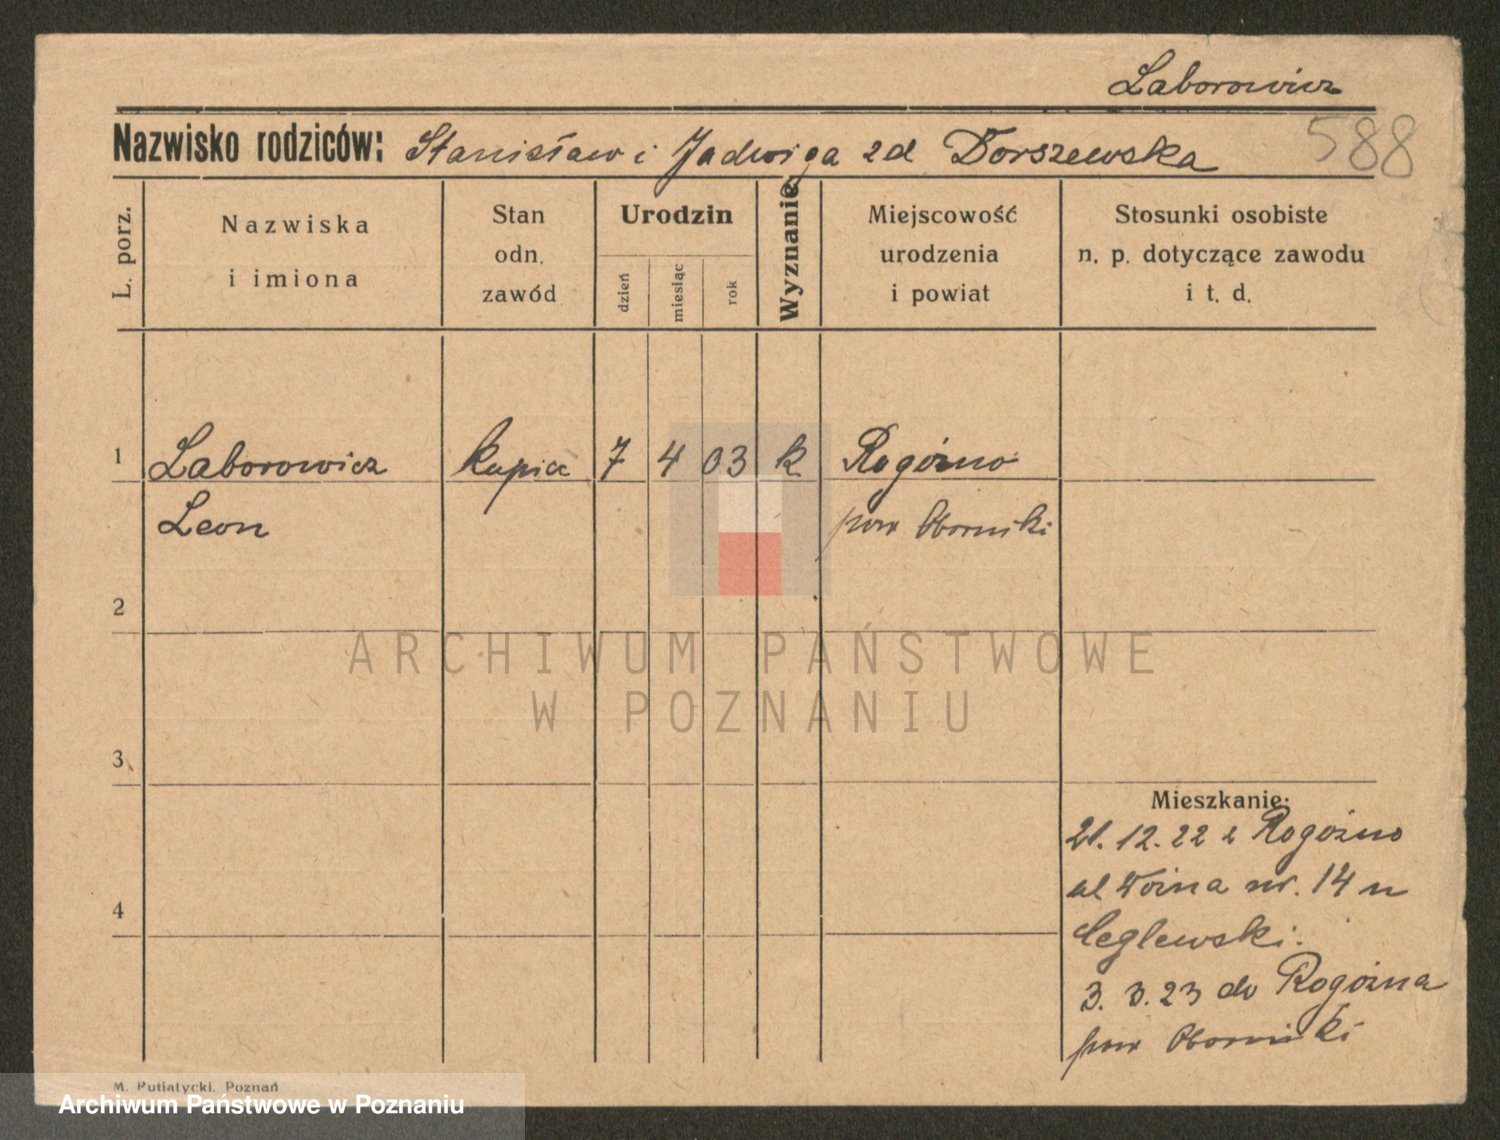 Laborowicz
588
Nazwisko rodziców: Stanisław i Jadwiga zd Dorszewska
L. porz.
Nazwiska
i imiona
Stan
odn.
zawód
Urodzin
dzień
miesiąc
rok
Wyznanie
Miejscowość
urodzenia
i powiat
Stosunki osobiste
n. p. dotyczące zawodu
i t. d.
1 Laborowicz kupiec 7 4 03 k Rogóźno
Leon pow Oborniki
2
3
Mieszkanie:
21.12.22 z Rogóźno
ul nr. 14 u
Ceglewski.
4
3.3.23 do Rogóźna
pow Oborniki
M. Putiatycki, Poznań
ARCHIWUM PAŃSTWOWE
W POZNANIU
Archiwum Państwowe w Poznaniu